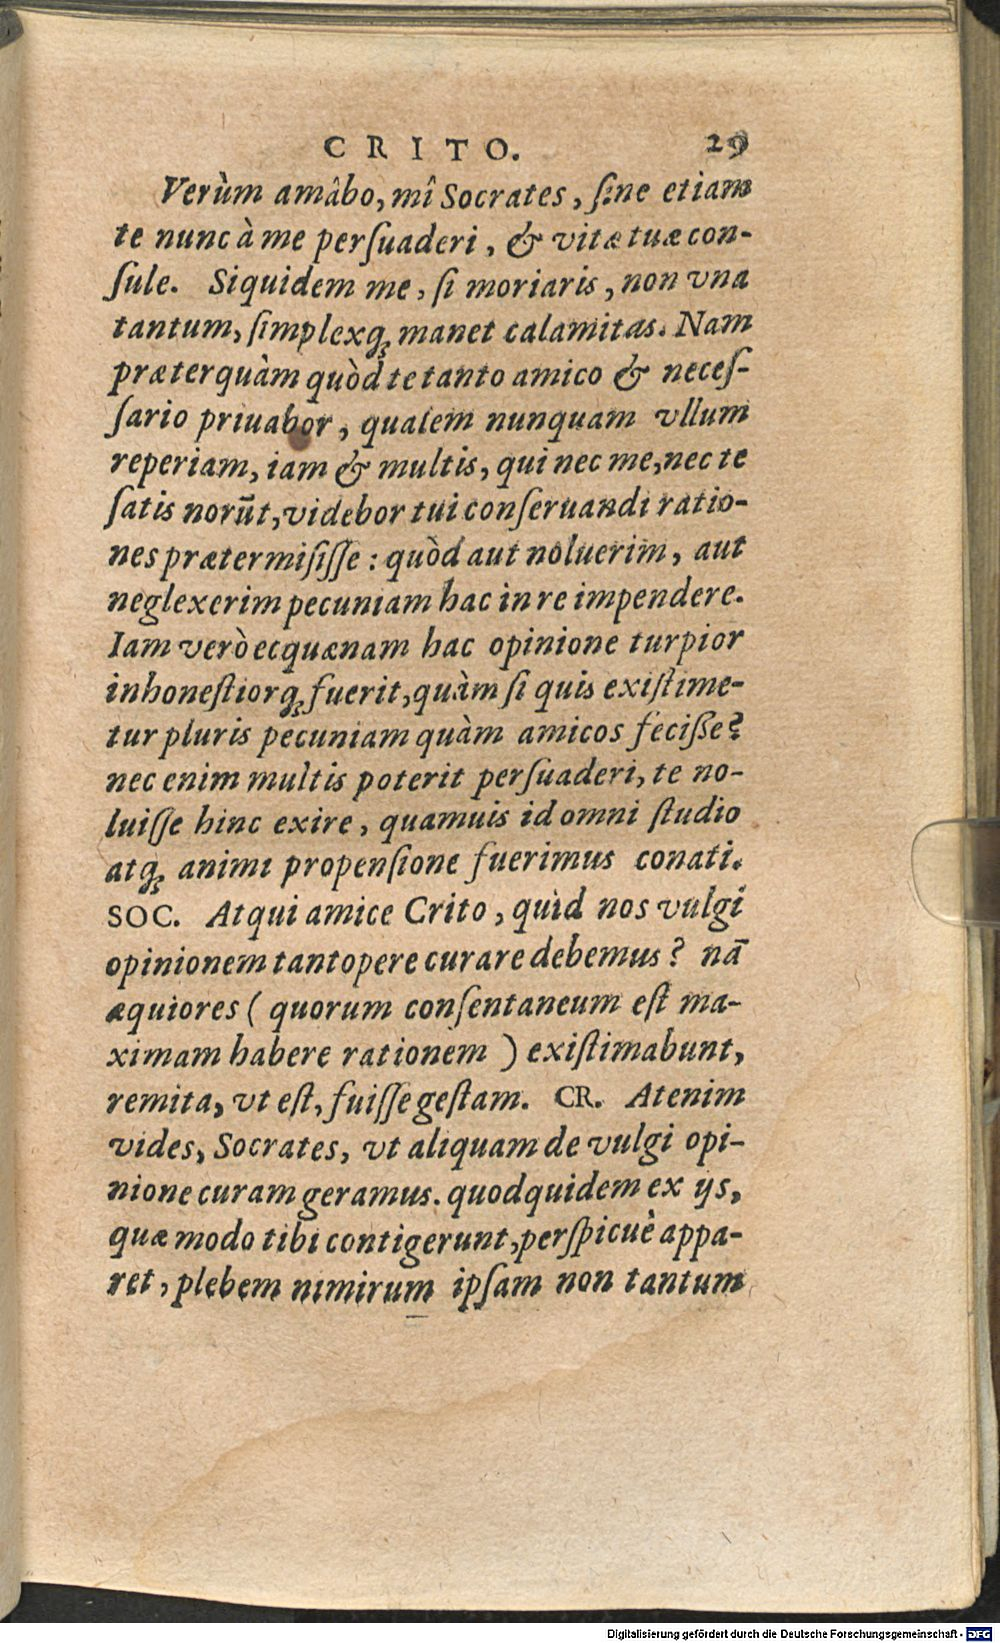 CRITO. 29
Verùm amâbo, mî Socrates, ſine etiam
te nunc à me perſuaderi, & vitæ tuæ con-
ſule. Siquidem me, ſi moriaris, non vna
tantum, ſimplexq́ꝫ manet calamitas. Nam
præterquàm quòd te tanto amico & neceſ-
ſario priuabor, qualem nunquam vllum
reperiam, iam & multis, qui nec me, nec te
ſatis norūt, videbor tui conſeruandi ratio-
nes prætermiſiſſe: quòd aut noluerim, aut
neglexerim pecuniam hac in re impendere.
Iam verò ecquænam hac opinione turpior
inhoneſtiorq́ꝫ fuerit, quàm ſi quis exiſtime-
tur pluris pecuniam quàm amicos feciſſe?
nec enim multis poterit perſuaderi, te no-
luiſſe hinc exire, quamuis id omni ſtudio
atqꝫ animi propenſione fuerimus conati.
SOC. Atqui amice Crito, quid nos vulgi
opinionem tantopere curare debemus? nā
æquiores (quorum conſentaneum eſt ma-
ximam habere rationem) exiſtimabunt,
rem ita, vt eſt, fuiſſe geſtam. CR. Atenim
vides, Socrates, vt aliquam de vulgi opi-
nione curam geramus. quod quidem ex ijs,
quæ modo tibi contigerunt, perſpicuè appa-
ret, plebem nimirum ipſam non tantum
Digitalisierung gefördert durch die Deutsche Forschungsgemeinschaft - DFG